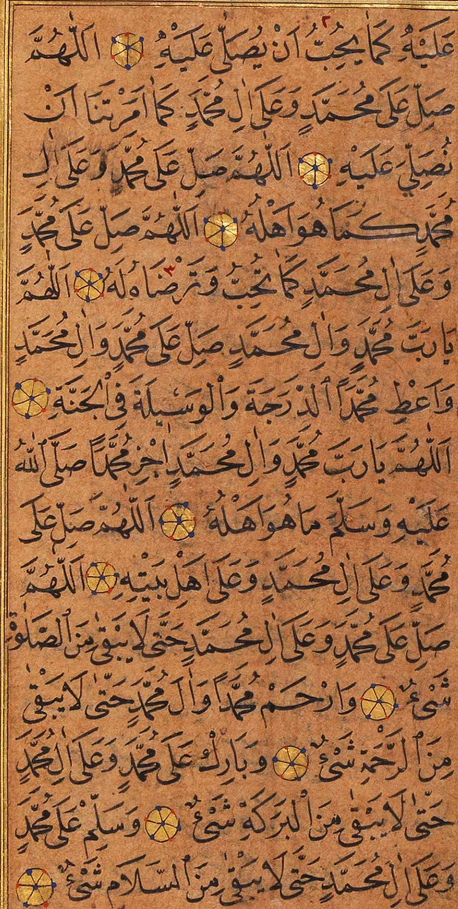 عَلَيْهِ كَمَا يُحِبُّ اَنْ يُصَلّٰى عَلَيْهِ اَللّٰهُمَّ
صَلِّ عَلٰى مُحَمَّدٍ وَعَلٰى اٰلِ مُحَمَّدٍ كَمَا اَمَرْتَنَا اَنْ
نُصَلِّيَ عَلَيْهِ اَللّٰهُمَّ صَلِّ عَلٰى مُحَمَّدٍ وَعَلٰى اٰلِ
مُحَمَّدٍ كَمَا هُوَ اَهْلُهُ اَللّٰهُمَّ صَلِّ عَلٰى مُحَمَّدٍ
وَعَلٰى اٰلِ مُحَمَّدٍ كَمَا تُحِبُّ وَتَرْضَاهُ لَهُ اَللّٰهُمَّ
يَا رَبَّ مُحَمَّدٍ وَاٰلِ مُحَمَّدٍ صَلِّ عَلٰى مُحَمَّدٍ وَاٰلِ مُحَمَّدٍ
وَاَعْطِ مُحَمَّدًا الدَّرَجَةَ وَالْوَسِيلَةَ فِي الْجَنَّةِ
اَللّٰهُمَّ يَا رَبَّ مُحَمَّدٍ وَاٰلِ مُحَمَّدٍ اِجْزِ مُحَمَّدًا صَلَّى اللّٰهُ
عَلَيْهِ وَسَلَّمَ مَا هُوَ اَهْلُهُ اَللّٰهُمَّ صَلِّ عَلٰى
مُحَمَّدٍ وَعَلٰى اٰلِ مُحَمَّدٍ وَعَلٰى اَهْلِ بَيْتِهِ اَللّٰهُمَّ
صَلِّ عَلٰى مُحَمَّدٍ وَعَلٰى اٰلِ مُحَمَّدٍ حَتّٰى لَا يَبْقٰى مِنَ الصَّلٰوةِ
شَيْءٌ وَارْحَمْ مُحَمَّدًا وَاٰلَ مُحَمَّدٍ حَتّٰى لَا يَبْقٰى
مِنَ الرَّحْمَةِ شَيْءٌ وَبَارِكْ عَلٰى مُحَمَّدٍ وَعَلٰى اٰلِ مُحَمَّدٍ
حَتّٰى لَا يَبْقٰى مِنَ الْبَرَكَةِ شَيْءٌ وَسَلِّمْ عَلٰى مُحَمَّدٍ
وَعَلٰى اٰلِ مُحَمَّدٍ حَتّٰى لَا يَبْقٰى مِنَ السَّلَامِ شَيْءٌ